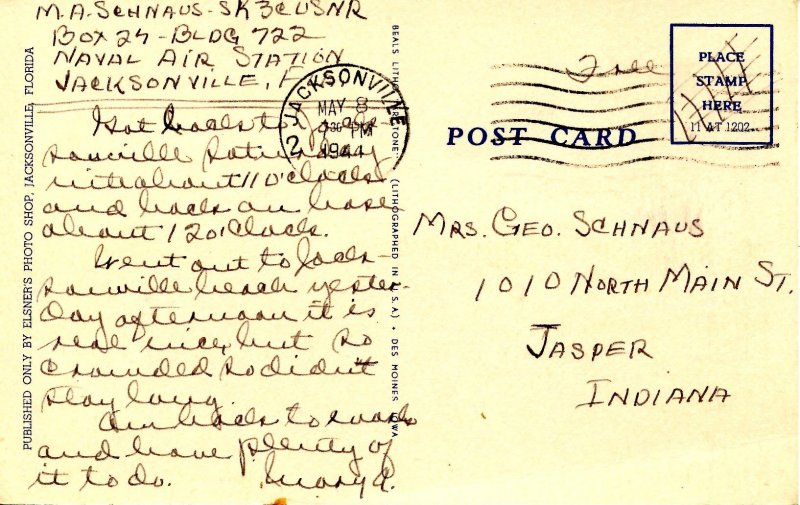 M.A. SCHNAUS - SK3C USNR
BOX 24 - BLDG 722
NAVAL AIR STATION
JACKSONVILLE, F
Got back to Jack-
sonville Saturday
nite about 11 O'Clock
and back on base
about 12 O'Clock.
Went out to Jack-
sonville beach yester-
day afternoon it is
real nice, but so
crowded so didn't
stay long.
Am back to work
and have plenty of
it to do. Mary A.
PUBLISHED ONLY BY ELSNER'S PHOTO SHOP, JACKSONVILLE, FLORIDA
BEALS LITHO (LITHOGRAPHED IN U.S.A.) • DES MOINES, IOWA
JACKSONVILLE
MAY 8
PM
1944
2
Free
PLACE
STAMP
HERE
11 AT 1202
POST CARD
MRS. GEO. SCHNAUS
1010 NORTH MAIN ST.
JASPER
INDIANA